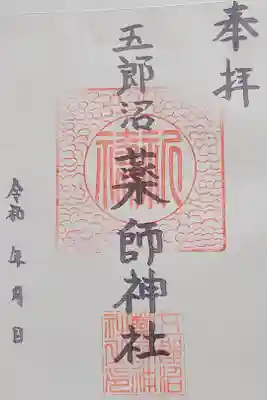 奉拝
五郎沼薬師神社
令和 年 月 日